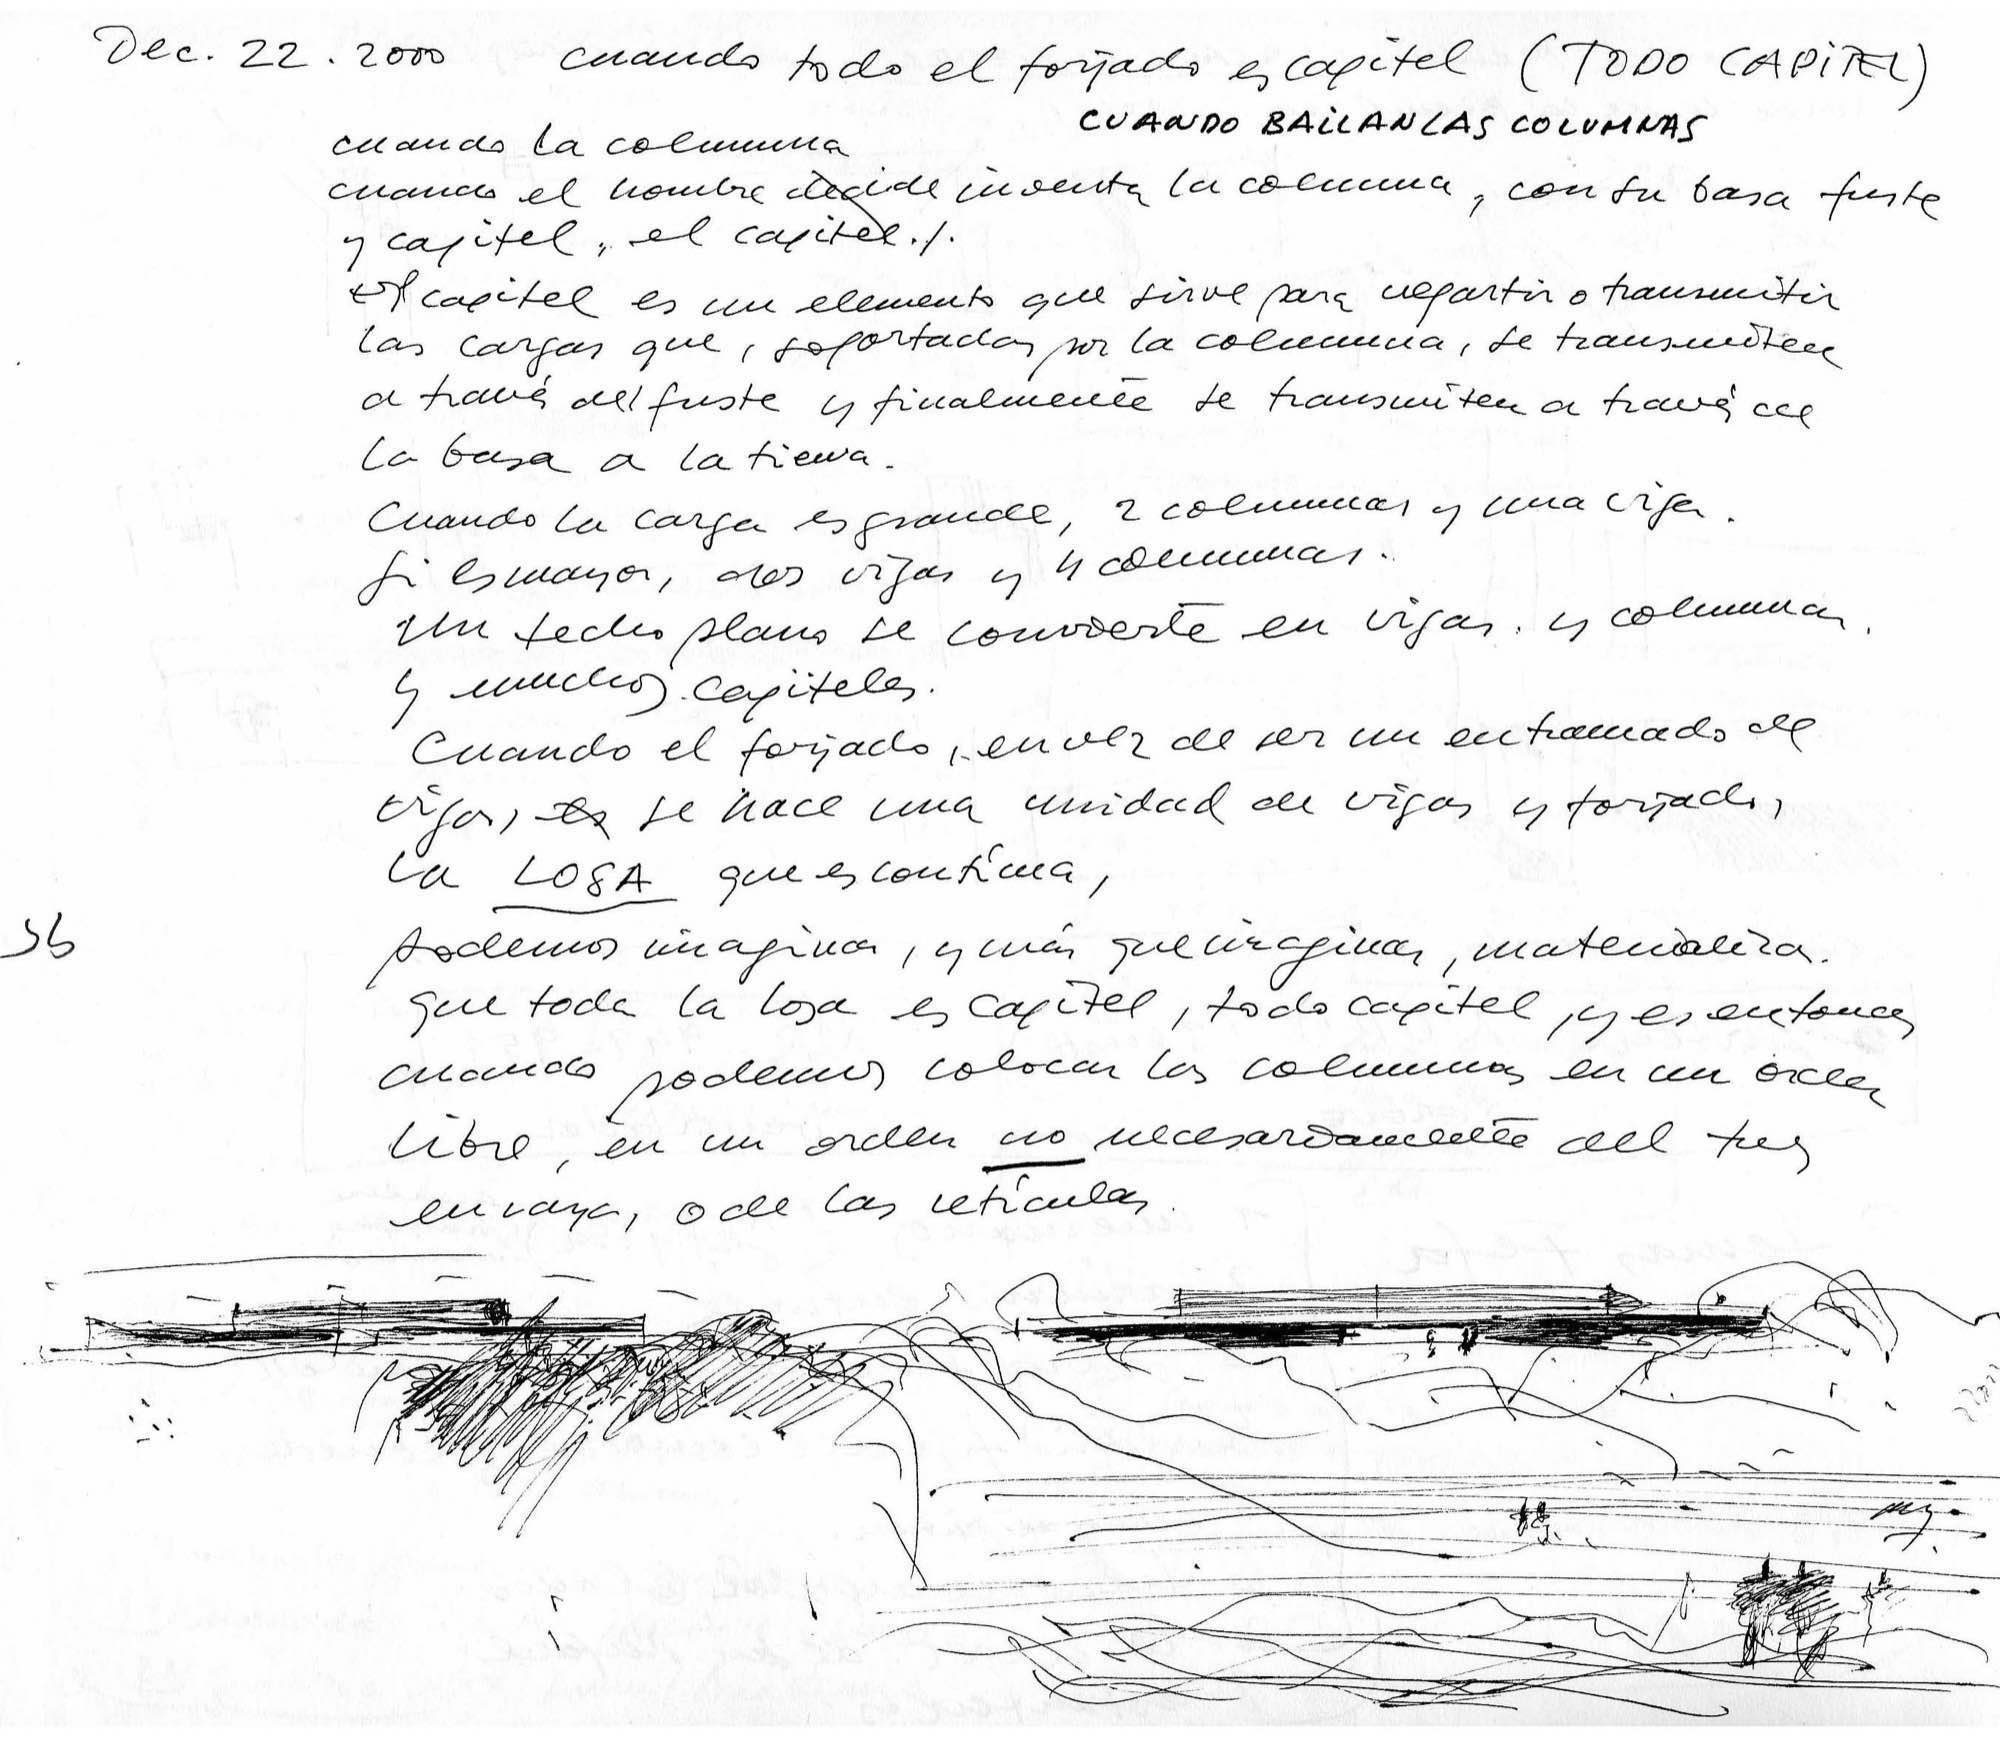 Dec. 22. 2000 cuando todo el forjado es capitel (TODO CAPITEL)
CUANDO BAILAN LAS COLUMNAS
cuando la columna
cuando el hombre decide inventa la columna, con su basa fuste
y capitel, el capitel./.
el capitel es un elemento que sirve para repartir o transmitir
las cargas que, soportadas por la columna, se transmiten
a través del fuste y finalmente se transmiten a través de
la basa a la tierra.
Cuando la carga es grande, 2 columnas y una viga.
Si es mayor, dos vigas y 4 columnas.
Un techo plano se convierte en vigas. y columnas.
y muchos capiteles.
Cuando el forjado, en vez de ser un entramado de
vigas, es se hace una unidad de vigas y forjado,
la LOSA que es contínua,
podemos imaginar, y más que imaginar, materializar.
que toda la losa es capitel, todo capitel, y es entonces
cuando podemos colocar las columnas en un orden
libre, en un orden no necesariamente del tres
en raya, o de las retículas.